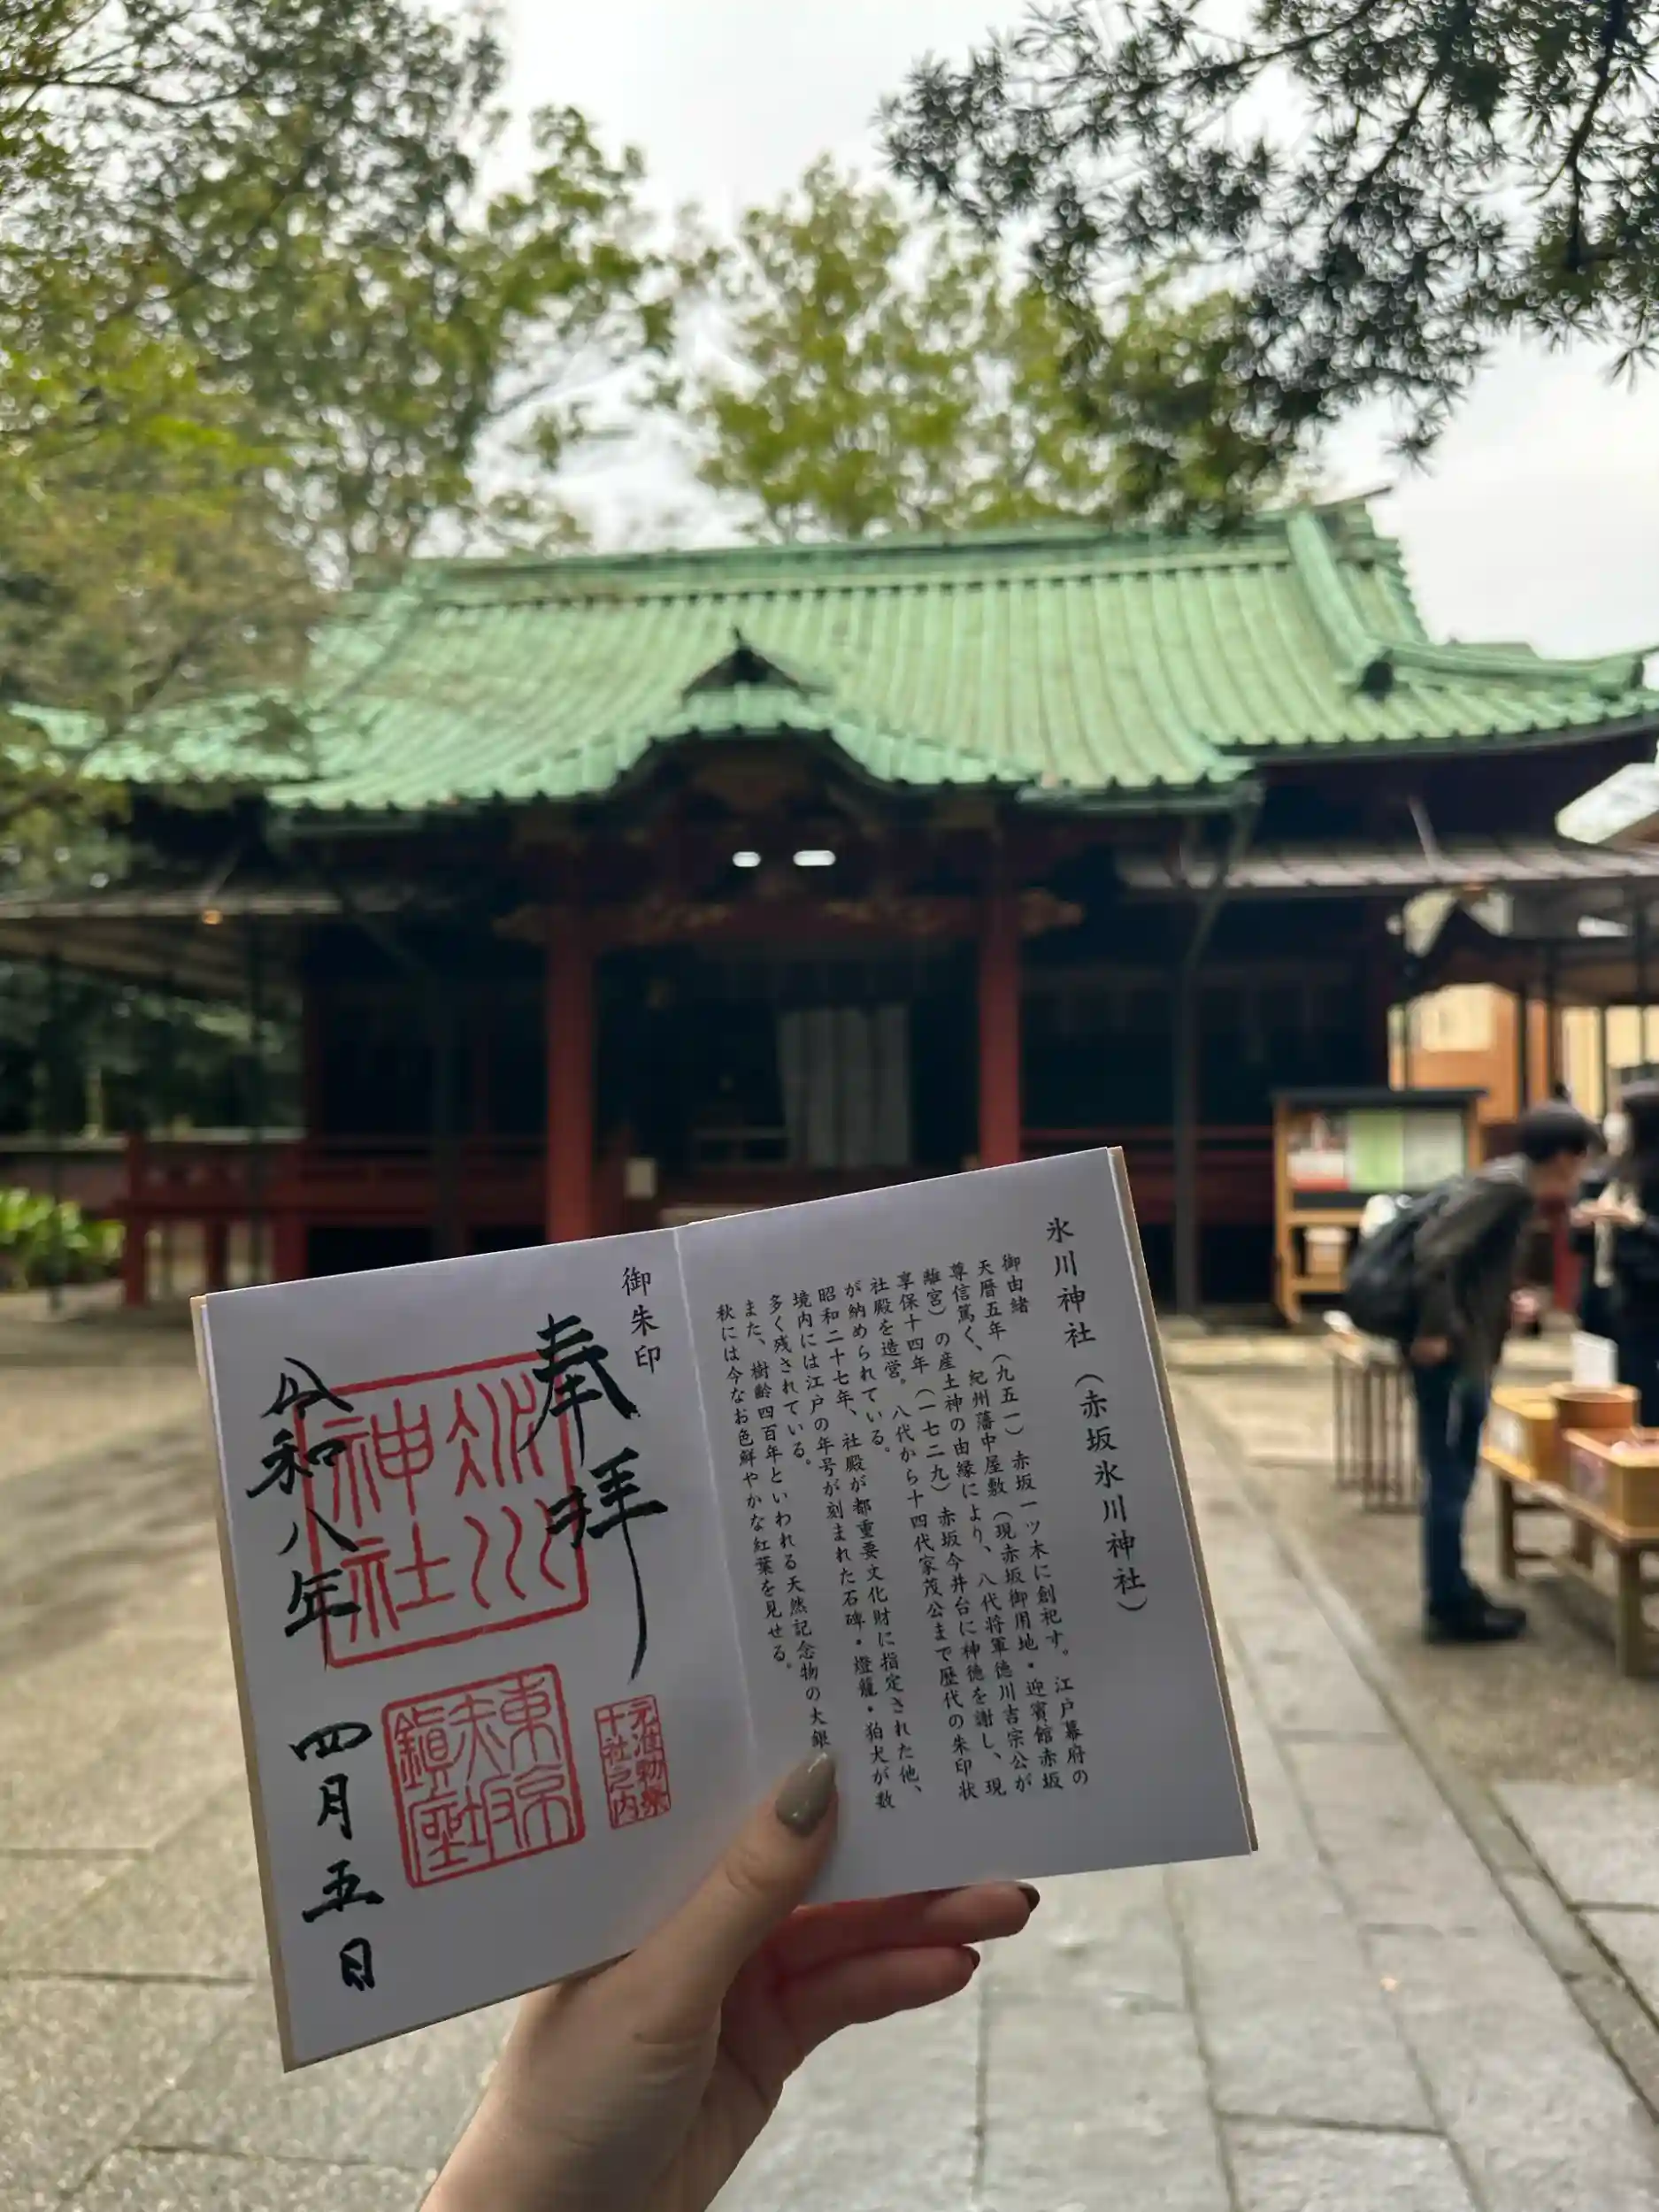 氷川神社(赤坂氷川神社)
御由緒
天暦五年(九五一)赤坂一ツ木に創祀す。江戸幕府の
尊信篤く、紀州藩中屋敷(現赤坂御用地・迎賓館赤坂
離宮)の産土神の由縁により、八代将軍徳川吉宗公が
享保十四年(一七二九)赤坂今井台に神徳を謝し、現
社殿を造営。八代から十四代家茂公まで歴代の朱印状
が納められている。
昭和二十七年、社殿が都重要文化財に指定された他、
境内には江戸の年号が刻まれた石碑・燈籠・狛犬が数
多く残されている。
また、樹齢四百年といわれる天然記念物の大銀
秋には今なお色鮮やかな紅葉を見せる。
御朱印
奉拝
氷川
神社
元准勅祭
十社之内
東京
赤坂
鎮座
令和八年 四月五日